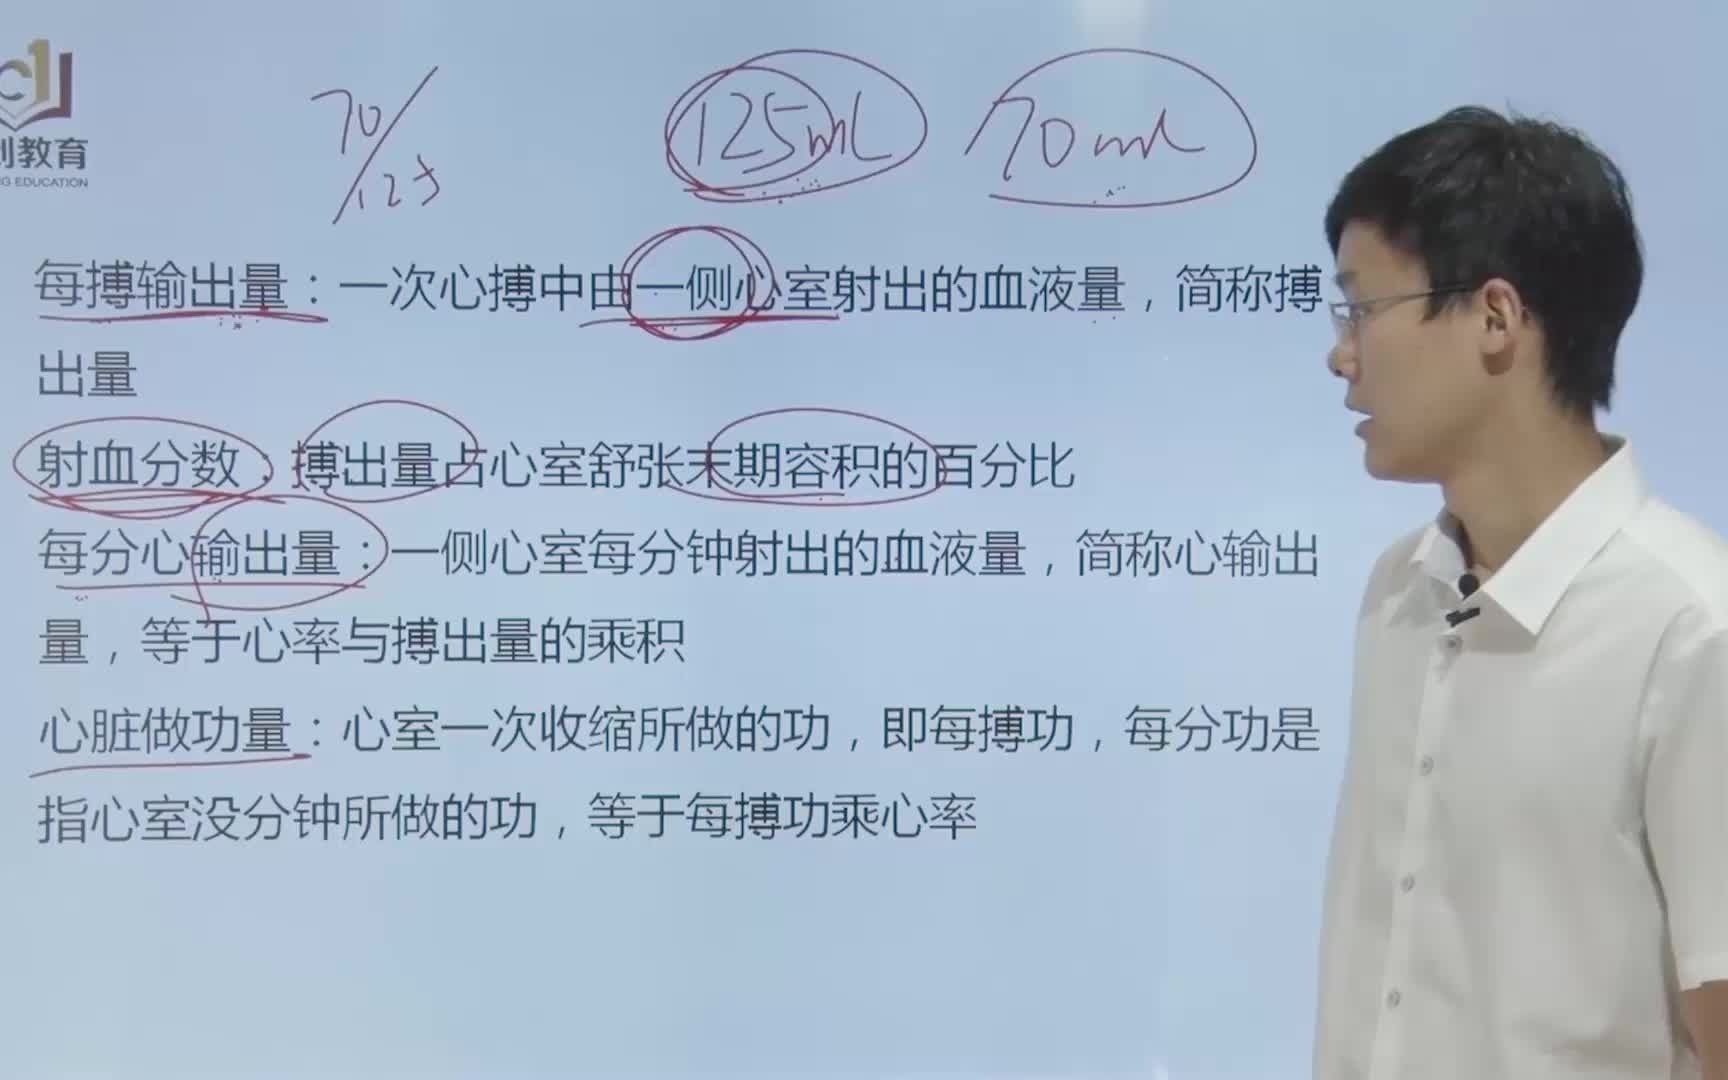 C1
创教育
NG EDUCATION
70/125
125ml
70ml
每搏输出量：一次心搏中由一侧心室射出的血液量，简称搏
出量
射血分数：搏出量占心室舒张末期容积的百分比
每分心输出量：一侧心室每分钟射出的血液量，简称心输出
量，等于心率与搏出量的乘积
心脏做功量：心室一次收缩所做的功，即每搏功，每分功是
指心室没分钟所做的功，等于每搏功乘心率